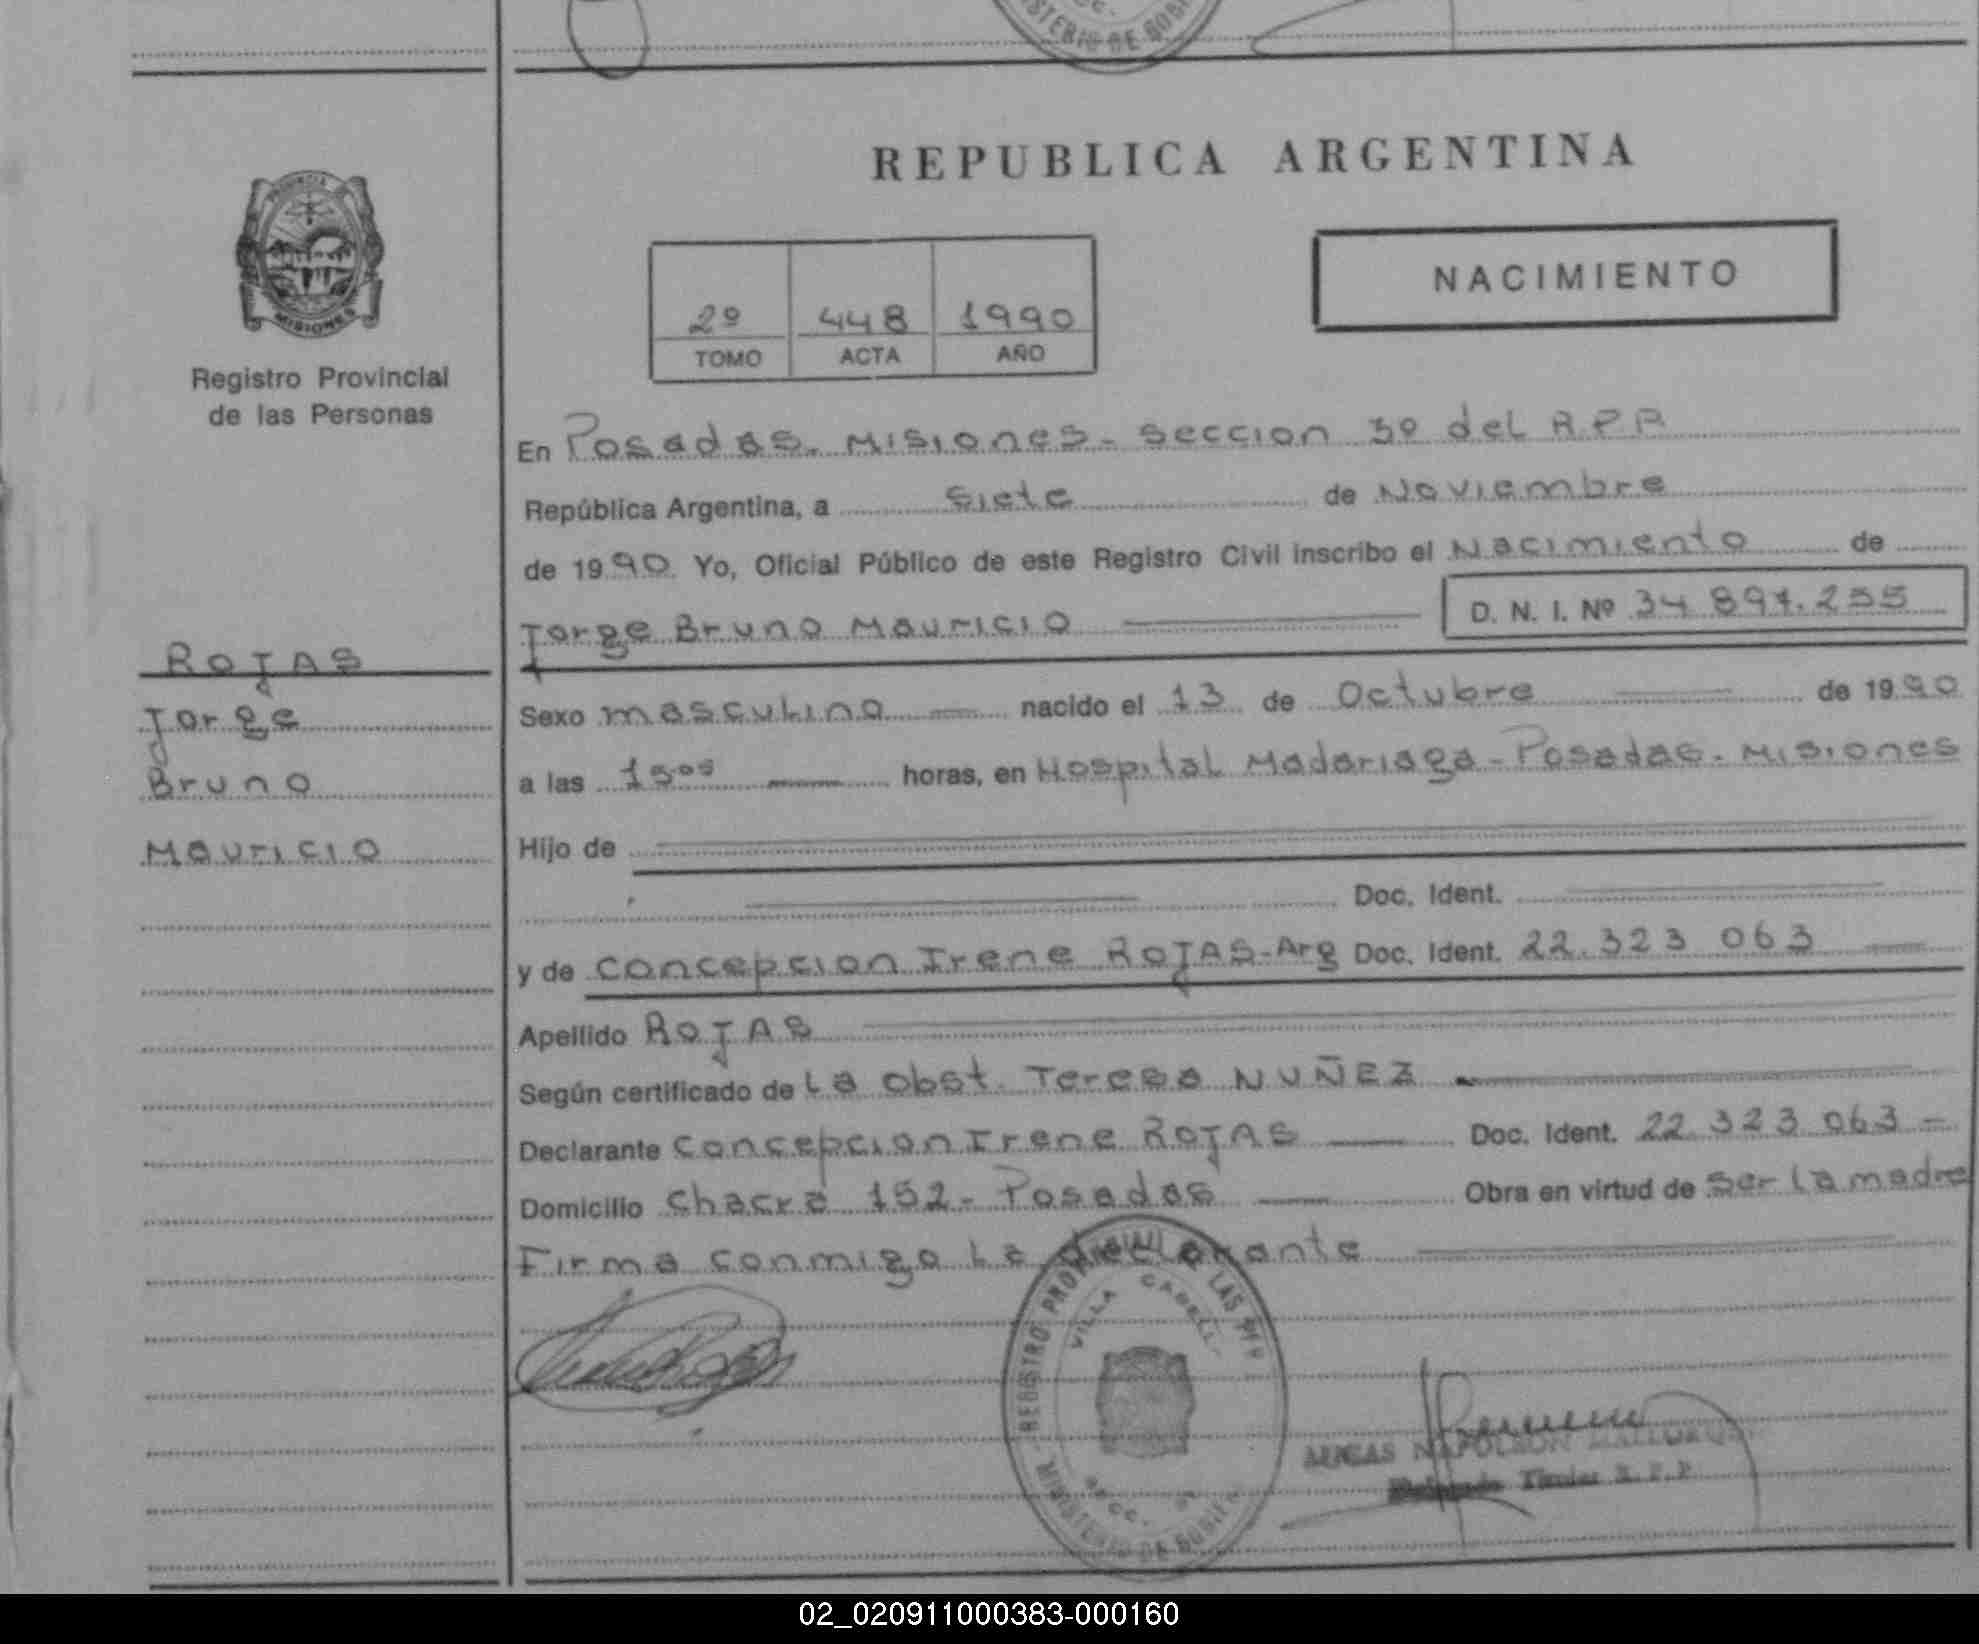 REPUBLICA ARGENTINA
PROVINCIA
MISIONES
Registro Provincial
de las Personas
2º 448 1990
TOMO ACTA AÑO
NACIMIENTO
En Posadas. Misiones. Seccion 3º del R.P.P.
República Argentina, a siete de Noviembre
de 1990 Yo, Oficial Público de este Registro Civil inscribo el Nacimiento de
Jorge Bruno Mauricio D. N. I. Nº 34 897.255
ROJAS
Jorge
Bruno
Mauricio
Sexo masculino nacido el 13 de Octubre de 1990
a las 15 horas, en Hospital Madariaga - Posadas. Misiones
Hijo de
Doc. Ident.
y de Concepcion Irene ROJAS-Arg Doc. Ident. 22.323 063
Apellido ROJAS
Según certificado de La obst. Teresa NUÑEZ
Declarante Concepcion Irene ROJAS Doc. Ident. 22.323 063 -
Domicilio Chacra 152 - Posadas Obra en virtud de ser la madre
Firma conmigo La declarante
REGISTRO PROVINCIAL DE LAS PER
VILLA CABELL
SECC. 3ª
MINISTERIO DE GOBIER
NAPOLEON
Titular R. P. P.
02_020911000383-000160